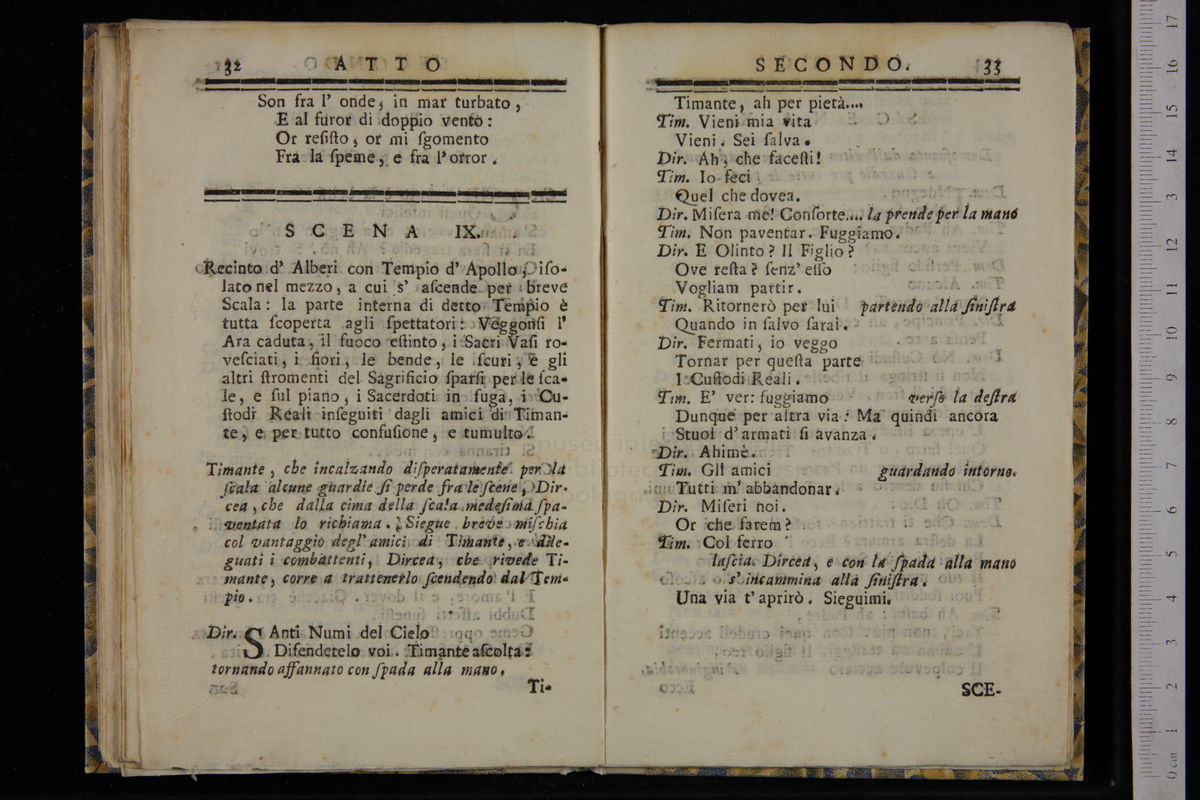 32 ATTO
Son fra l' onde, in mar turbato,
E al furor di doppio vento:
Or reſiſto, or mi ſgomento
Fra la ſpeme, e fra l' orror.
SCENA IX.
Recinto d' Alberi con Tempio d' Apollo, iſo-
lato nel mezzo, a cui s' aſcende per breve
Scala: la parte interna di detto Tempio è
tutta ſcoperta agli ſpettatori: Veggonſi l'
Ara caduta, il fuoco eſtinto, i Sacri Vaſi ro-
veſciati, i fiori, le bende, le ſcuri, e gli
altri ſtromenti del Sagrificio ſparſi per le ſca-
le, e ſul piano, i Sacerdoti in fuga, i Cu-
ſtodi Reali inſeguiti dagli amici di Timan-
te, e per tutto confuſione, e tumulto.
Timante, che incalzando diſperatamente per la
ſcala alcune guardie ſi perde fra le ſcene, Dir-
cea, che dalla cima della ſcala medeſima ſpa-
ventata lo richiama. Siegue breve miſchia
col vantaggio degl' amici di Timante, e dile-
guati i combattenti, Dircea, che rivede Ti-
mante, corre a trattenerlo ſcendendo dal Tem-
pio.
Dir. SAnti Numi del Cielo
Difendetelo voi. Timante aſcolta:
tornando affannato con ſpada alla mano.
Ti-
SECONDO. 33
Timante, ah per pietà....
Tim. Vieni mia vita
Vieni. Sei ſalva.
Dir. Ah, che faceſti!
Tim. Io feci
Quel che dovea.
Dir. Miſera me! Conſorte.... la prende per la mano
Tim. Non paventar. Fuggiamo.
Dir. E Olinto? Il Figlio?
Ove reſta? ſenz' eſſo
Vogliam partir.
Tim. Ritornerò per lui partendo alla ſiniſtra
Quando in ſalvo ſarai.
Dir. Fermati, io veggo
Tornar per queſta parte
I Cuſtodi Reali.
Tim. E' ver: fuggiamo verſo la deſtra
Dunque per altra via: Ma quindi ancora
Stuol d' armati ſi avanza.
Dir. Ahimè.
Tim. Gli amici guardando intorno.
Tutti m' abbandonar.
Dir. Miſeri noi.
Or che farem?
Tim. Col ferro
laſcia Dircea, e con la ſpada alla mano
s' incammina alla ſiniſtra.
Una via t' aprirò. Sieguimi.
SCE-
0 cm 1 2 3 4 5 6 7 8 9 10 11 12 13 14 15 16 17